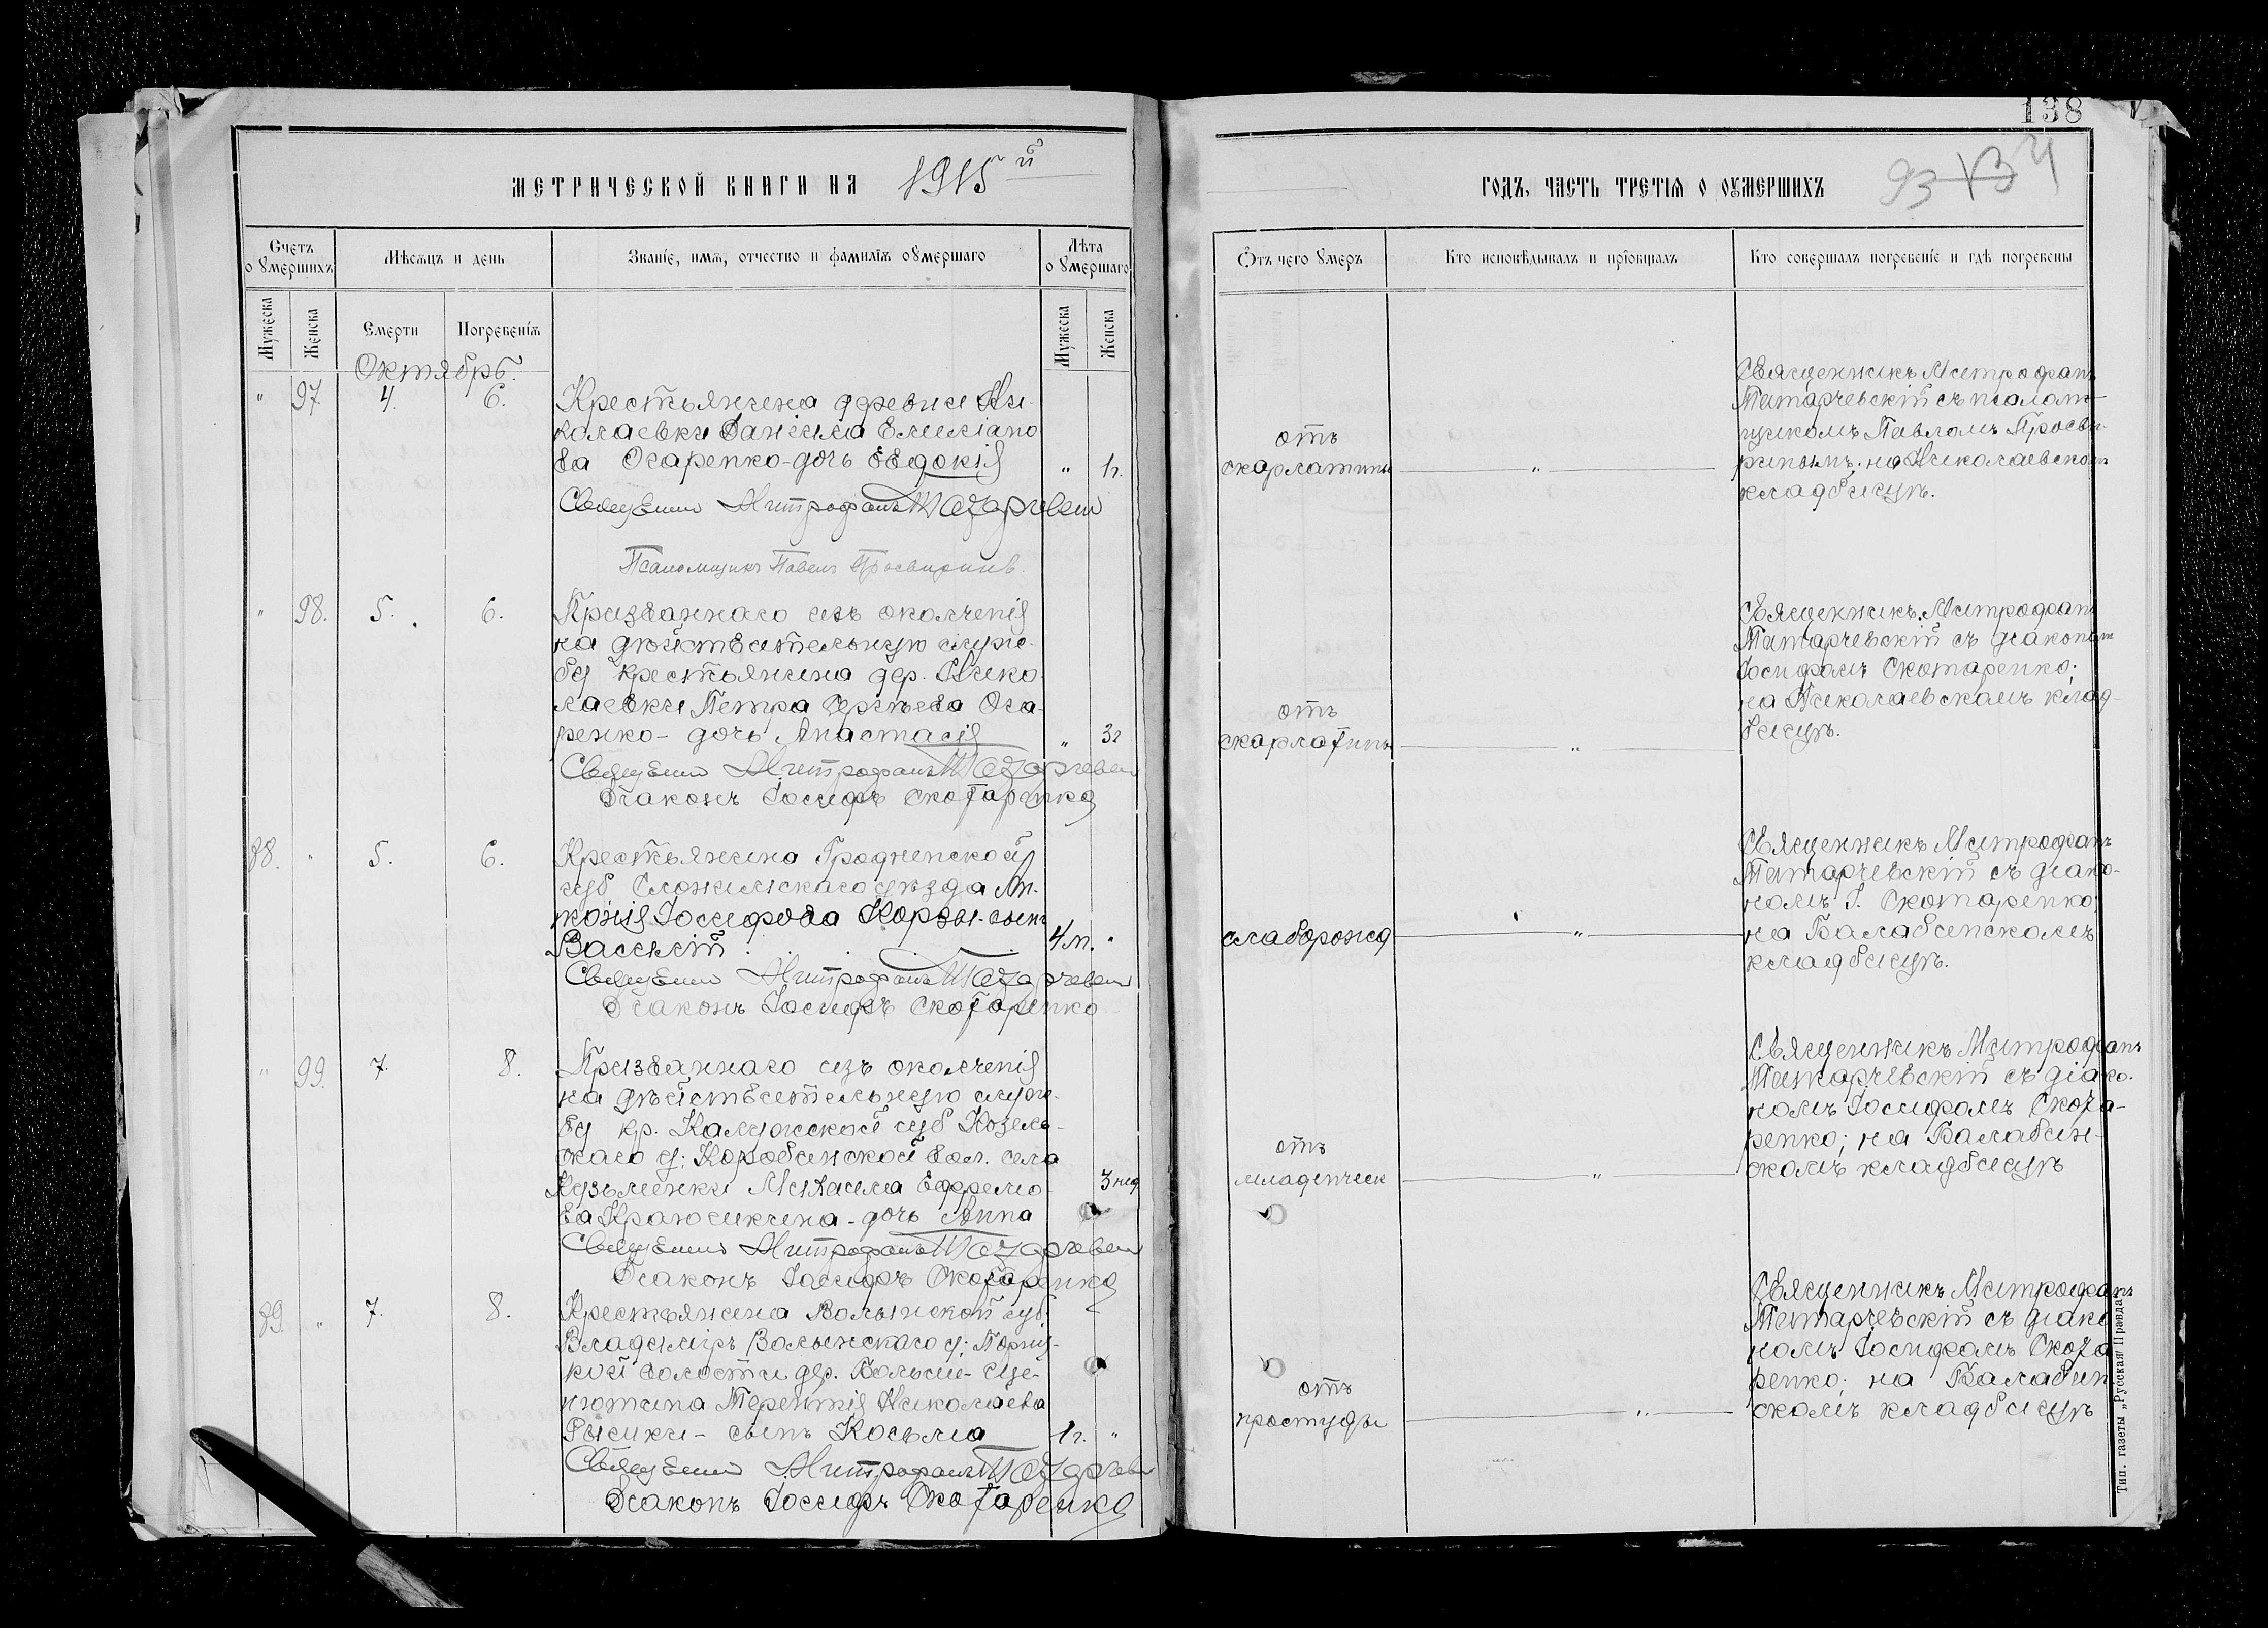 138
МЕТРИЧЕСКОЙ КНИГИ НА 1915й
ГОДЪ, ЧАСТЬ ТРЕТІЯ О ОУМЕРШИХЪ
93
Счетъ о умершихъ
Мѣсяцъ и день
Званіе, имя, отчество и фамилія оумершаго
Лѣта о умершаго
Отъ чего умеръ
Кто исповѣдывалъ и пріобщалъ
Кто совершалъ погребеніе и гдѣ погребены
Мужеска
Женска
Смерти
Погребенія
Мужеска
Женска
Октябрь.
" 97. 4. 6.
Крестьянина деревни Ни-
колаевки Даніила Емиліано
ва Огаренко-дочь Евдокія " 1г.
Священникъ Митрофанъ
Псаломщикъ Павелъ Просвиринъ.
отъ
скарлатины "
Священникъ Митрофанъ
Титарчевскій съ псалом-
щикомъ Павломъ Просви-
ринымъ. на Николаевскомъ
кладбищѣ.
" 98. 5. 6.
Призваннаго изъ ополченія
на дѣйствительную служ-
бу крестьянина дер. Нико-
лаевки Петра Сергѣева Ога-
ренко - дочь Анастасія " 3г
Священникъ Митрофанъ
Діаконъ Іосифъ Скотаренко
отъ
скарлатины "
Священникъ Митрофанъ
Титарчевскій съ діакономъ
Іосифомъ Скотаренко;
на Николаевскомъ клад-
бищѣ.
88. " 5. 6.
Крестьянина Гродненской
губ Слонимскаго уѣзда Ан-
тонія Іосифова Корзы-сынъ
Василій 4 м. "
Священникъ Митрофанъ
Діаконъ Іосифъ Скотаренко
слаборожд "
Священникъ Митрофанъ
Титарчевскій съ діако-
номъ І. Скотаренко
на Балабинскомъ
кладбищѣ.
" 99. 7. 8.
Призваннаго изъ ополченія
на дѣйствительную служ-
бу кр. Калужской губ Козель-
скаго у: Коробинской вол. села
Кузьменки Михаила Ефремо- 3 нед
ва - дочь Анна
Священникъ Митрофанъ
Діаконъ Іосифъ Скотаренко
отъ
младенческ "
Священникъ Митрофанъ
Титарчевскій съ діако-
номъ Іосифомъ Скота-
ренко; на Балабин-
скомъ кладбищѣ
89. " 7. 8.
Крестьянина Волынской губ.
Владиміръ Волынскаго у:
кой волости дер.
Терентія Николаева
сынъ Косьма 1г. "
Священникъ Митрофанъ
Діаконъ Іосифъ Скотаренко
отъ
простуды "
Священникъ Митрофанъ
Титарчевскій съ діако
номъ Іосифомъ Скота
ренко; на Балабин
скомъ кладбищѣ
Тип. газеты „Русская Правда"